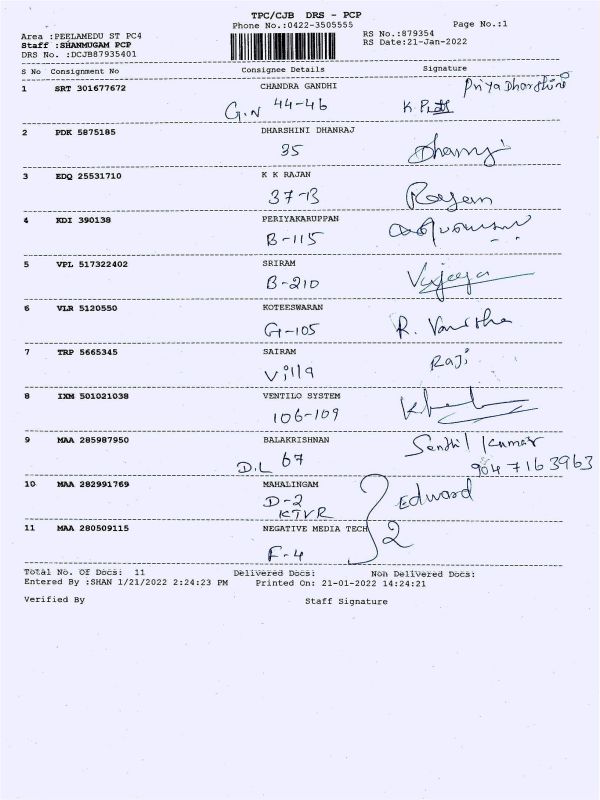 TPC/CJB DRS - PCP
Phone No.:0422-3505555 Page No.:1
Area :PEELAMEDU ST PC4 RS No.:879354
Staff :SHANMUGAM PCP RS Date:21-Jan-2022
DRS No. :DCJB87935401
S No Consignment No Consignee Details Signature
1 SRT 301677672 CHANDRA GANDHI PriyaDharshini
G.N 44-46 K.
2 PDK 5875185 DHARSHINI DHANRAJ
35
3 EDQ 25531710 K K RAJAN
37-B Rajan
4 KDI 390138 PERIYAKARUPPAN
B-115
5 VPL 517322402 SRIRAM
B-210
6 VLR 5120550 KOTEESWARAN
G-105 R.
7 TRP 5665345 SAIRAM
Villa Raji
8 IXM 501021038 VENTILO SYSTEM
106-109
9 MAA 285987950 BALAKRISHNAN Senthil Kumar
D.L 67 9047163963
10 MAA 282991769 MAHALINGAM
D-2 Edward
KTVR
11 MAA 280509115 NEGATIVE MEDIA TECH 2
F-4
Total No. Of Docs: 11 Delivered Docs: Non Delivered Docs:
Entered By :SHAN 1/21/2022 2:24:23 PM Printed On: 21-01-2022 14:24:21
Verified By Staff Signature